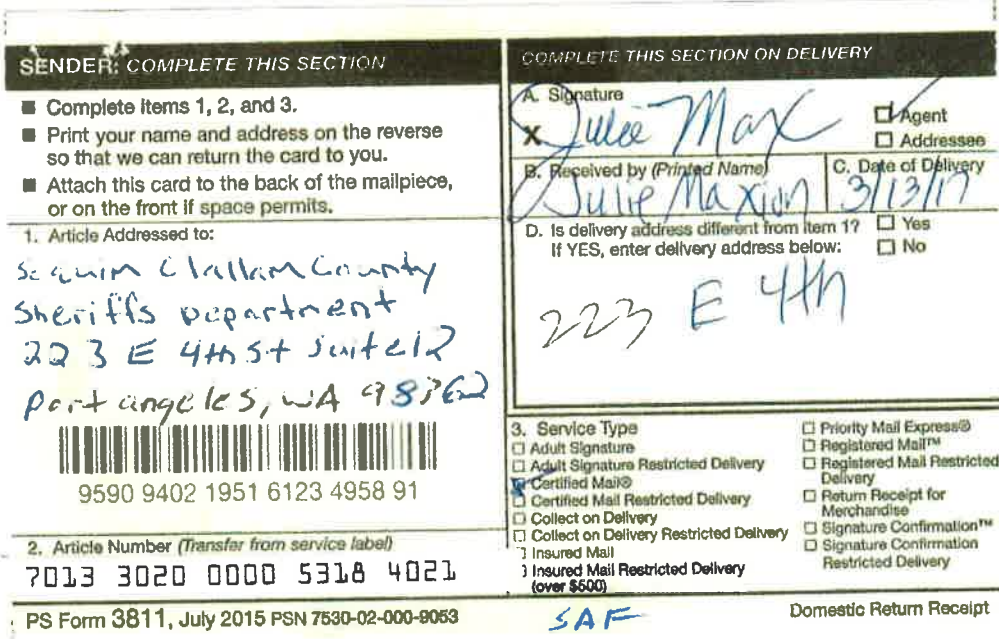 SENDER: COMPLETE THIS SECTION
■ Complete items 1, 2, and 3.
■ Print your name and address on the reverse
so that we can return the card to you.
■ Attach this card to the back of the mailpiece,
or on the front if space permits.
1. Article Addressed to:
Sequim Clallam County
Sheriffs Department
223 E 4th St Suite 12
Port angeles, WA 98362
9590 9402 1951 6123 4958 91
2. Article Number (Transfer from service label)
7013 3020 0000 5318 4021
PS Form 3811, July 2015 PSN 7530-02-000-9053
COMPLETE THIS SECTION ON DELIVERY
A. Signature
X Julie Max
☑ Agent
☐ Addressee
B. Received by (Printed Name)
Julie Maxion
C. Date of Delivery
3/13/17
D. Is delivery address different from item 1? ☐ Yes
If YES, enter delivery address below: ☐ No
223 E 4th
3. Service Type
☐ Adult Signature
☐ Adult Signature Restricted Delivery
☑ Certified Mail®
☐ Certified Mail Restricted Delivery
☐ Collect on Delivery
☐ Collect on Delivery Restricted Delivery
☐ Insured Mail
☐ Insured Mail Restricted Delivery
(over $500)
☐ Priority Mail Express®
☐ Registered Mail™
☐ Registered Mail Restricted
Delivery
☐ Return Receipt for
Merchandise
☐ Signature Confirmation™
☐ Signature Confirmation
Restricted Delivery
SAF
Domestic Return Receipt